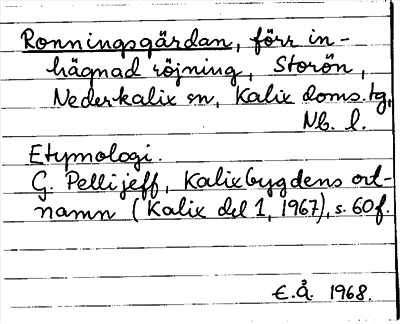 Ronningsgärdan, förr in-
hägnad röjning, Storön,
Nederkalix sn, Kalix doms.tg,
Nb. l.
Etymologi.
G. Pellijeff, Kalixbygdens ort-
namn (Kalix del 1, 1967), s. 60f.
E.Å. 1968.